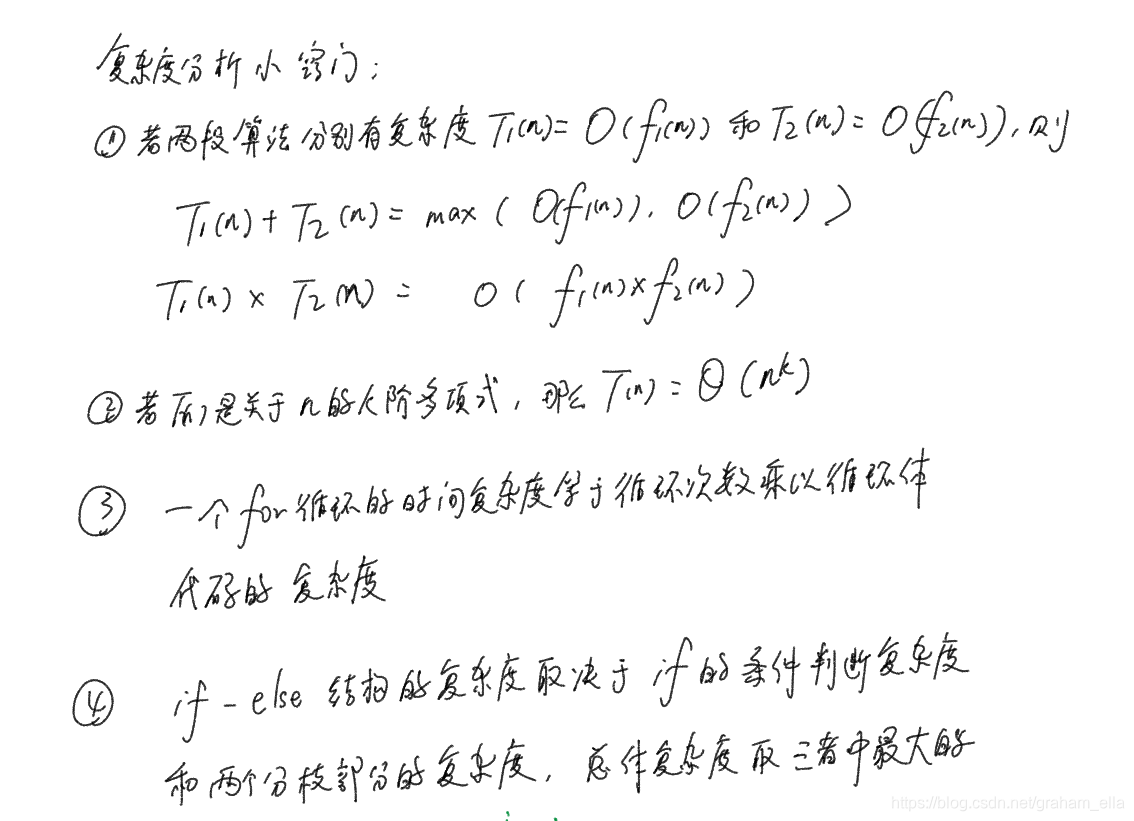 复杂度分析小窍门：
① 若两段算法分别有复杂度 T₁(n) = O(f₁(n)) 和 T₂(n) = O(f₂(n)), 则
T₁(n) + T₂(n) = max ( O(f₁(n)), O(f₂(n)) )
T₁(n) × T₂(n) = O( f₁(n) × f₂(n) )
② 若 T(n) 是关于 n 的 k 阶多项式, 那么 T(n) = Θ(nᵏ)
③ 一个 for 循环的时间复杂度等于循环次数乘以循环体
代码的复杂度
④ if - else 结构的复杂度取决于 if 的条件判断复杂度
和两个分枝部分的复杂度, 总体复杂度取三者中最大的
https://blog.csdn.net/graham_ella